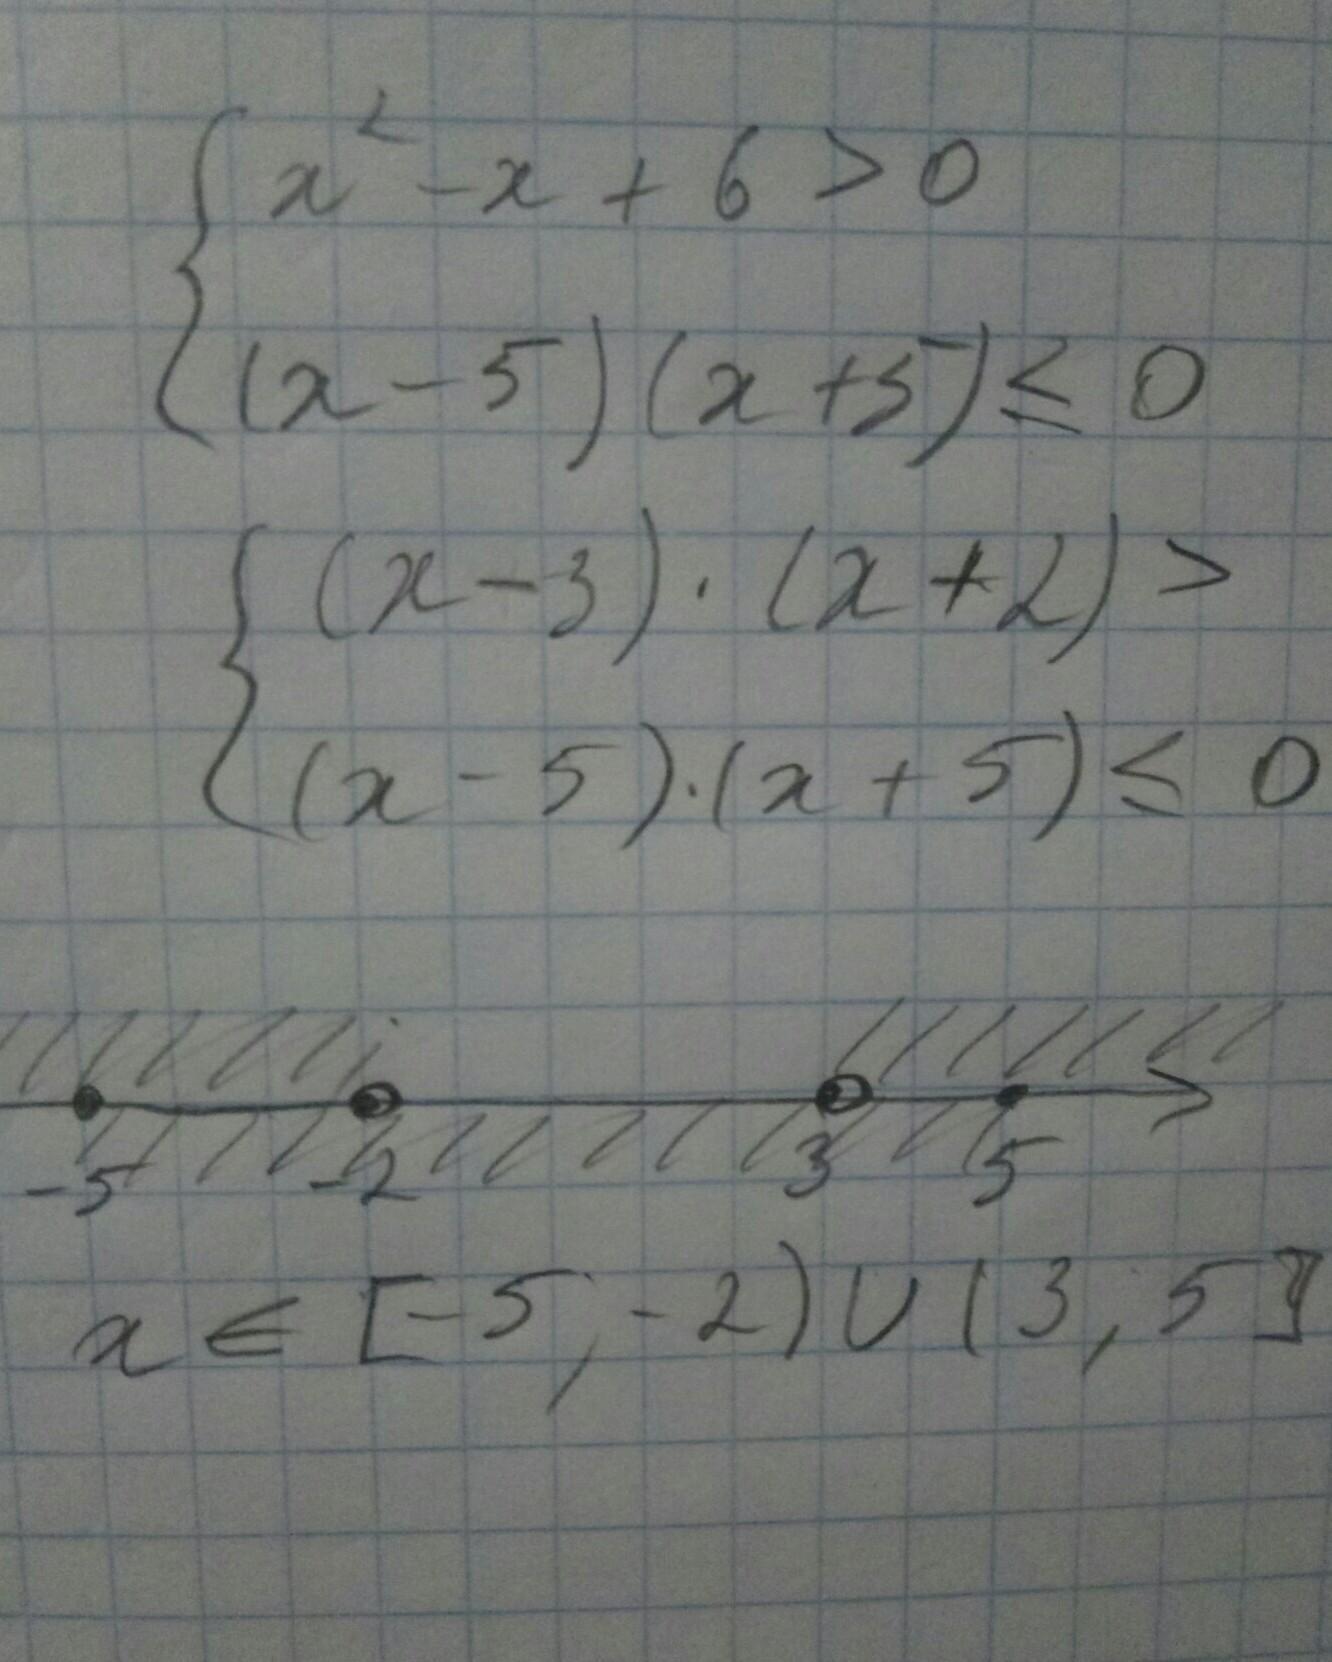 { x² - x + 6 > 0
(x - 5)(x + 5) ≤ 0
{ (x - 3) · (x + 2) >
(x - 5) · (x + 5) ≤ 0
-5 -2 3 5
x ∈ [-5, -2) ∪ (3, 5]